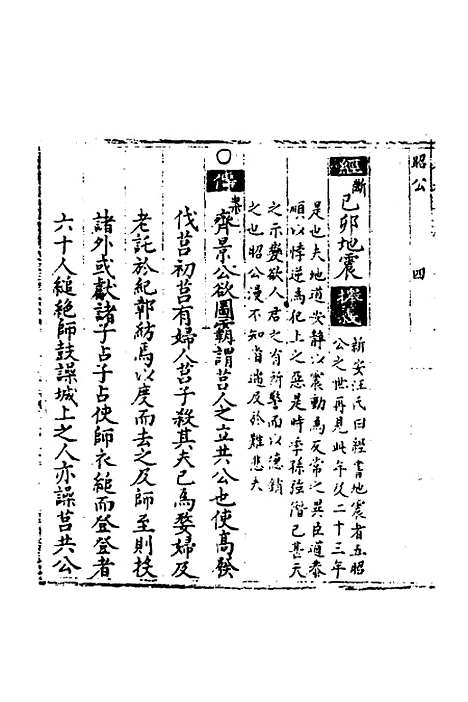 昭公 四
經斷 己卯地震 據發 新安汪氏曰經書地震者五昭
公之世再見此年及二十三年
是也夫地道安静以震動為反常之異臣道恭
順以悖逆為犯上之惡是時季孫強僭已甚天
之示變欲人君之有所警而以德銷
之也昭公漫不知省遁及於難悲夫
○傳案 齊景公欲圖霸謂莒人之立共公也使髙發
伐莒初莒有婦人莒子殺其夫已為嫠婦及
老託於紀鄣紡焉以度而去之及師至則投
諸外或獻諸子占子占使師夜縋而登登者
六十人縋絶師鼓譟城上之人亦譟莒共公